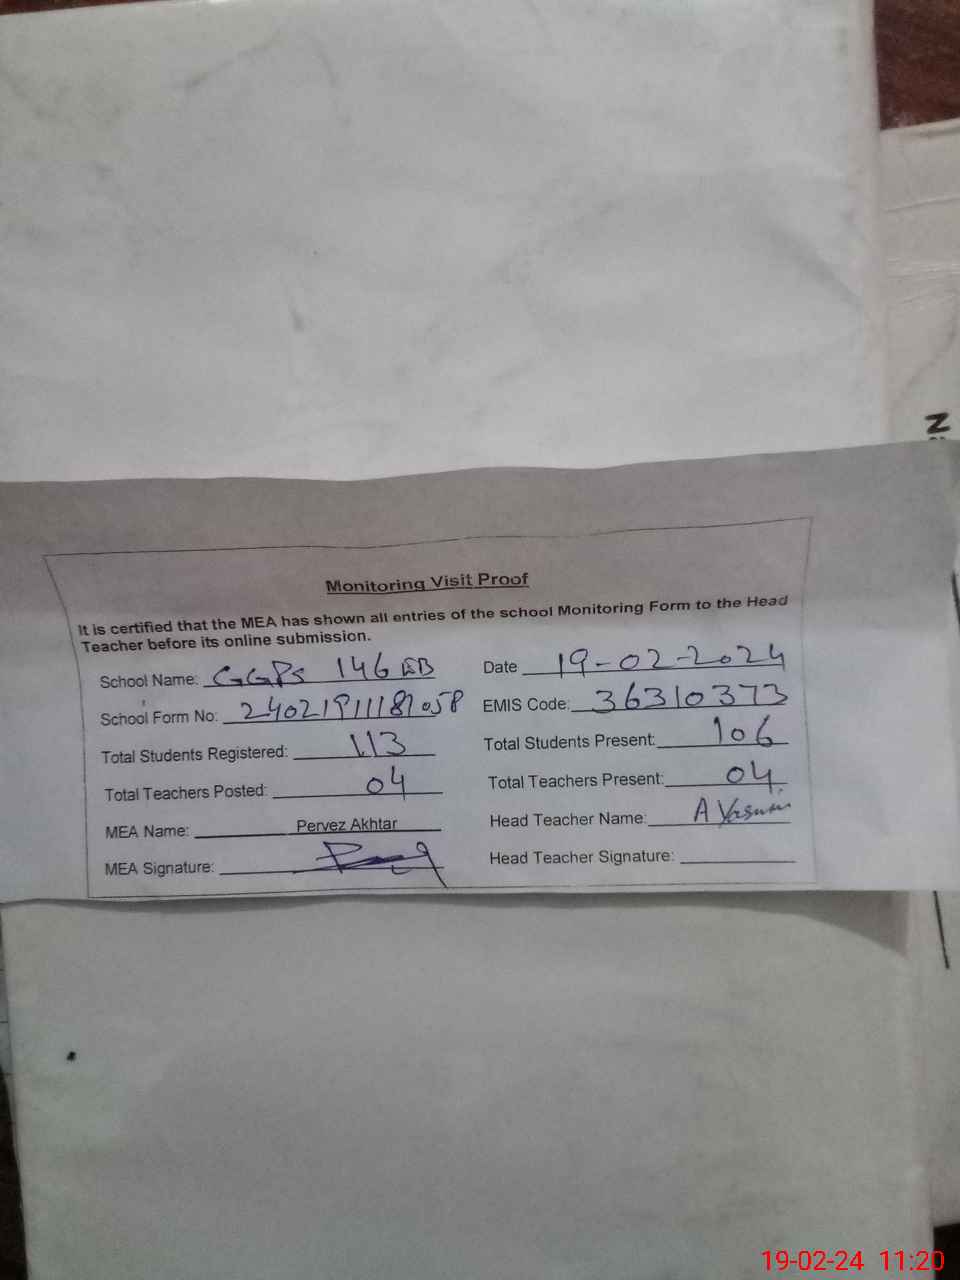 Monitoring Visit Proof
It is certified that the MEA has shown all entries of the school Monitoring Form to the Head
Teacher before its online submission.
School Name: GGPS 146 EB Date 19-02-2024
School Form No: 24021911181058 EMIS Code: 36310373
Total Students Registered: 113 Total Students Present: 106
Total Teachers Posted: 04 Total Teachers Present: 04
MEA Name: Pervez Akhtar Head Teacher Name: A Yasmin
MEA Signature: Head Teacher Signature:
N
19-02-24 11:20